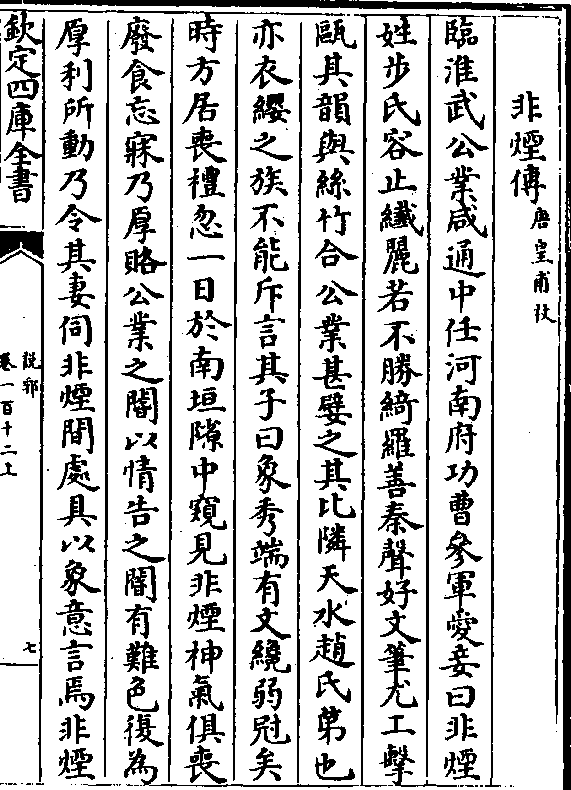 非煙傳唐皇甫枚
臨淮武公業咸通中任河南府功曹參軍愛妾曰非煙
姓步氏容止纖麗若不勝綺羅善秦聲好文筆尤工擊
甌其韻與絲竹合公業甚嬖之其比隣天水趙氏第也
亦衣纓之族不能斥言其子曰象秀端有文纔弱冠矣
時方居喪禮忽一日於南垣隙中窺見非煙神氣俱喪
廢食忘寐乃厚賂公業之閽以情告之閽有難色復為
厚利所動乃令其妻伺非煙間處具以象意言焉非煙
欽定四庫全書
說郛
卷一百十二上
七